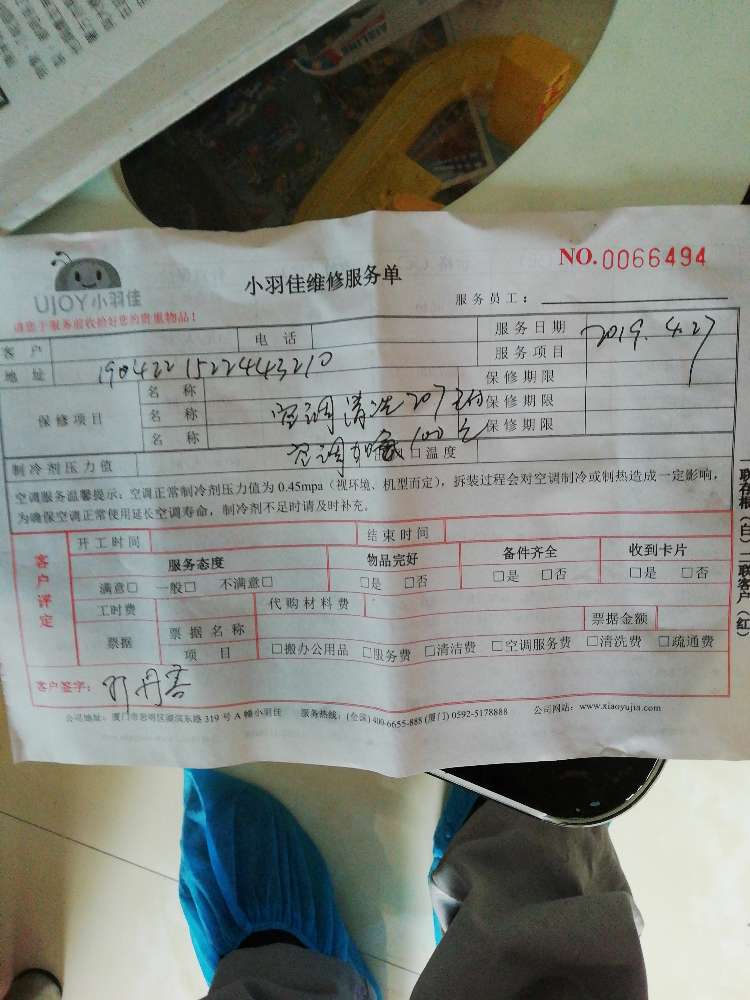 AIRLINE
NO.0066494
UJOY小羽佳
小羽佳维修服务单
服务员工：
请您于服务前收拾好您的贵重物品！
客户 电话 服务日期 2019.4.27
地址 1904221522443210 服务项目
保修项目 名称 保修期限
名称 空调清洗207 保修期限
名称 空调加 100元 保修期限
制冷剂压力值 □温度
空调服务温馨提示：空调正常制冷剂压力值为 0.45mpa（视环境、机型而定），拆装过程会对空调制冷或制热造成一定影响，
为确保空调正常使用延长空调寿命，制冷剂不足时请及时补充。
客户评定
开工时间 结束时间
服务态度 物品完好 备件齐全 收到卡片
满意□ 一般□ 不满意□ □是 □否 □是 □否 □是 □否
工时费 代购材料费
票据 票据名称 票据金额
项目 □搬办公用品 □服务费 □清洁费 □空调服务费 □清洗费 □疏通费
客户签字：
公司地址：厦门市思明区 东路 319 号 A 幢小羽佳 服务热线：(全国) 400-6655-888 (厦门) 0592-5178888 公司网站：www.xiaoyujia.com
一联存根（白） 二联客户（红）